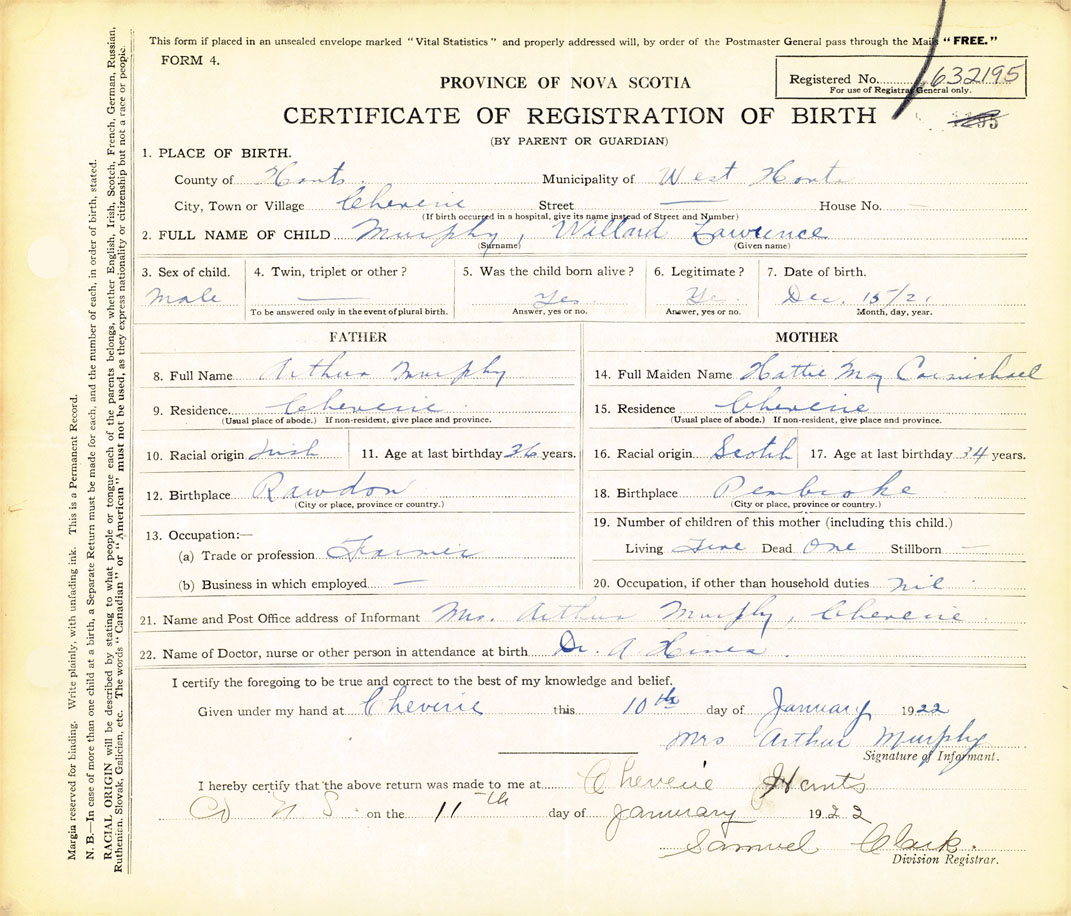 This form if placed in an unsealed envelope marked "Vital Statistics" and properly addressed will, by order of the Postmaster General pass through the Mails "FREE."
FORM 4.
PROVINCE OF NOVA SCOTIA
Registered No. 632195
For use of Registrar General only.
CERTIFICATE OF REGISTRATION OF BIRTH
(BY PARENT OR GUARDIAN)
1. PLACE OF BIRTH.
County of Hants. Municipality of West Hants
City, Town or Village Cheverie Street — House No. —
(If birth occurred in a hospital, give its name instead of Street and Number)
2. FULL NAME OF CHILD Murphy, Willard Lawrence
(Surname) (Given name)
3. Sex of child. 4. Twin, triplet or other? 5. Was the child born alive? 6. Legitimate? 7. Date of birth.
Male — Yes. Yes Dec. 15/21
To be answered only in the event of plural birth. Answer, yes or no. Answer, yes or no. Month, day, year.
FATHER MOTHER
8. Full Name Arthur Murphy 14. Full Maiden Name Hattie May Carmichael
9. Residence Cheverie 15. Residence Cheverie
(Usual place of abode.) If non-resident, give place and province. (Usual place of abode.) If non-resident, give place and province.
10. Racial origin Irish 11. Age at last birthday 36 years. 16. Racial origin Scotch 17. Age at last birthday 34 years.
12. Birthplace Rawdon 18. Birthplace Pembroke
(City or place, province or country.) (City or place, province or country.)
13. Occupation:— 19. Number of children of this mother (including this child.)
(a) Trade or profession Farmer Living Five Dead One Stillborn —
(b) Business in which employed — 20. Occupation, if other than household duties nil
21. Name and Post Office address of Informant Mrs. Arthur Murphy, Cheverie
22. Name of Doctor, nurse or other person in attendance at birth Dr. A
I certify the foregoing to be true and correct to the best of my knowledge and belief.
Given under my hand at Cheverie this 10th day of January 1922
Mrs Arthur Murphy
Signature of Informant.
I hereby certify that the above return was made to me at Cheverie Hants
Co N S on the 11th day of January 1922
Samuel Clark.
Division Registrar.
Margin reserved for binding. Write plainly, with unfading ink. This is a Permanent Record.
N. B.—In case of more than one child at a birth, a Separate Return must be made for each, and the number of each, in order of birth, stated.
RACIAL ORIGIN will be described by stating to what people or tongue each of the parents belongs, whether English, Irish, Scotch, French, German, Russian,
Ruthenian, Slovak, Galician, etc. The words "Canadian" or "American" must not be used, as they express nationality or citizenship but not a race or people.